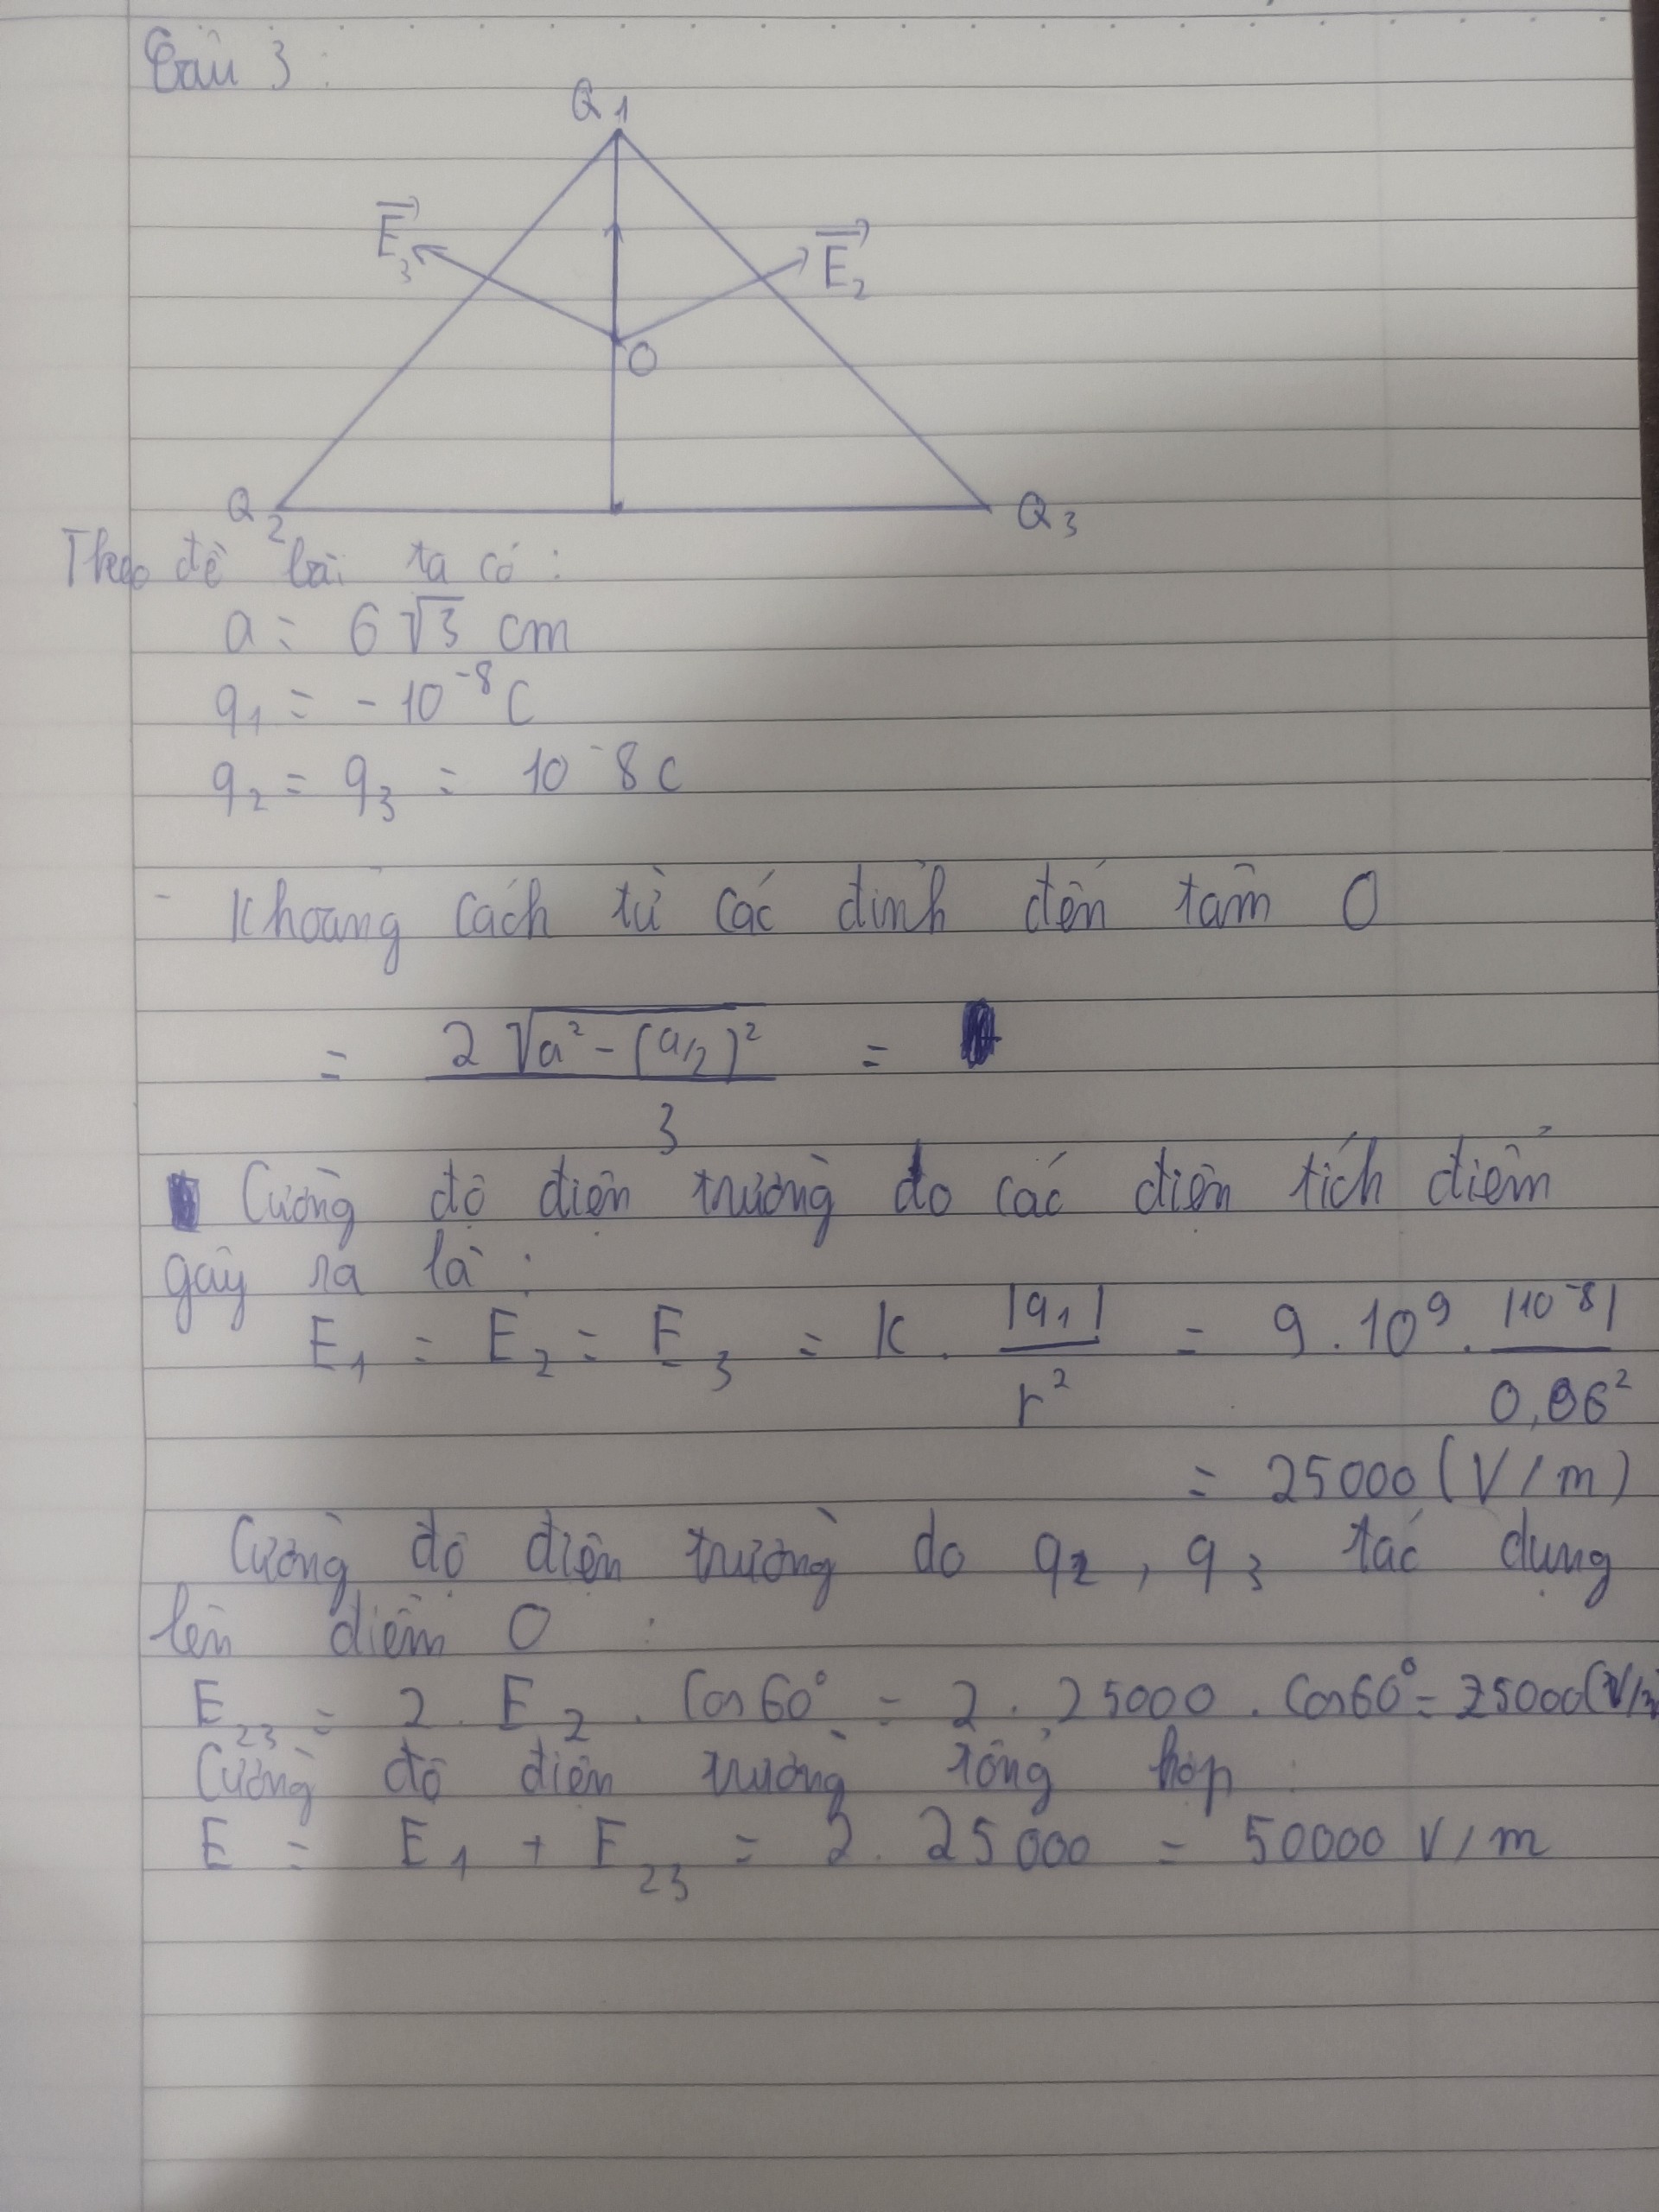 Câu 3:
Q1
E3
E2
O
Q2
Q3
Theo đề bài ta có:
a = 6√3 cm
q1 = -10^-8 C
q2 = q3 = 10^-8 C
- Khoảng cách từ các đỉnh đến tâm O
= 2√(a² - (a/2)²) / 3 =
Cường độ điện trường do các điện tích điểm
gây ra là:
E1 = E2 = E3 = K . |q1| / r² = 9.10^9 . |10^-8| / 0,06²
= 25000 (V/m)
Cường độ điện trường do q2, q3 tác dụng
lên điểm O:
E23 = 2. E2 . Cos60° = 2. 25000 . Cos60° = 25000 (V/m
Cường độ điện trường tổng hợp:
E = E1 + E23 = 2. 25000 = 50000 V/m